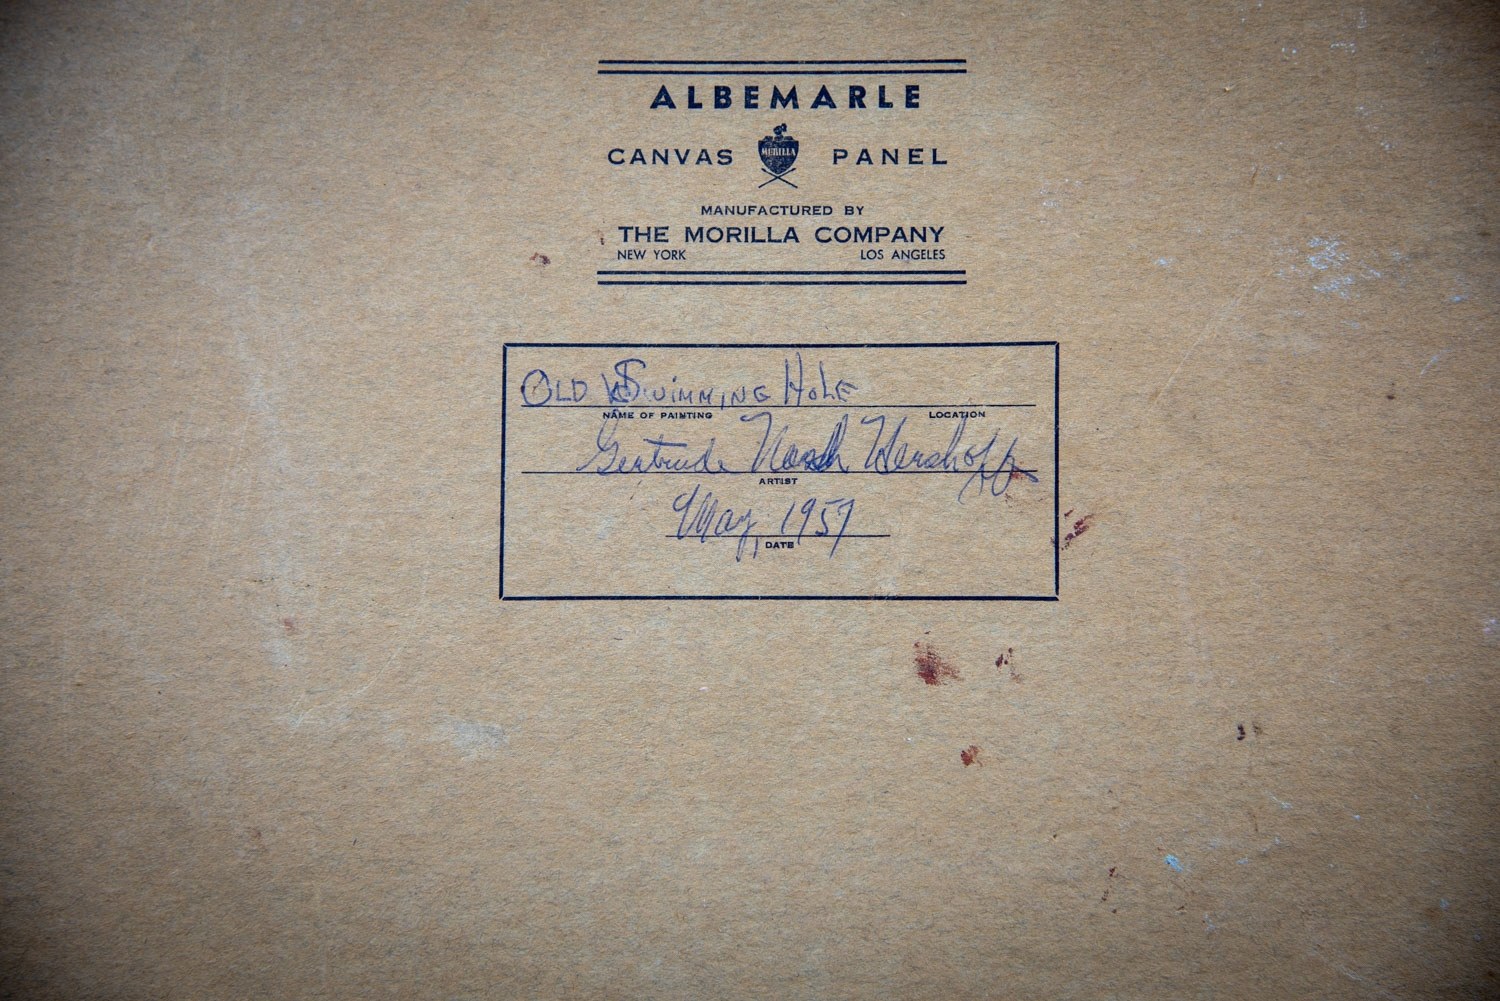 ALBEMARLE
CANVAS MORILLA PANEL
MANUFACTURED BY
THE MORILLA COMPANY
NEW YORK LOS ANGELES
OLD SWIMMING HOLE
NAME OF PAINTING LOCATION
Gertrude Nash Hershoff
ARTIST
May, 1957
DATE